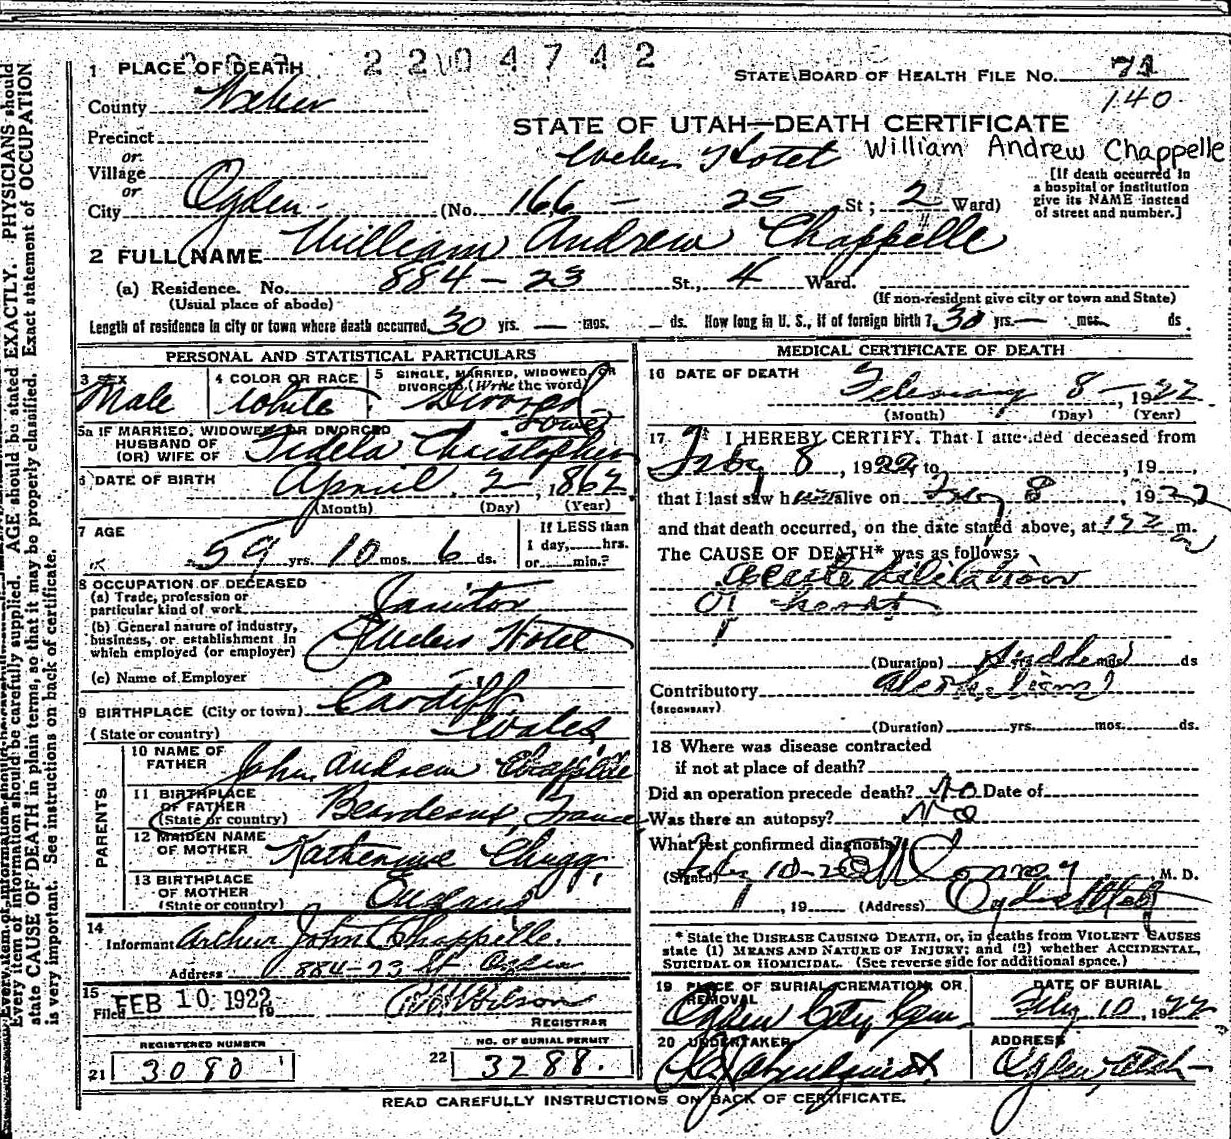 2204742
1 PLACE OF DEATH
STATE BOARD OF HEALTH FILE No. 71
140
County Weber
STATE OF UTAH—DEATH CERTIFICATE
Precinct
or
Weber Hotel William Andrew Chappelle
Village
or
[If death occurred in a hospital or institution give its NAME instead of street and number.]
City Ogden. (No. 166 — 25 St; 2 Ward)
2 FULL NAME William Andrew Chappelle
(a) Residence. No. 884 — 23 St., 4 Ward.
(Usual place of abode) (If non-resident give city or town and State)
Length of residence in city or town where death occurred 30 yrs. — mos. — ds. How long in U. S., if of foreign birth? 30 yrs. — mos. ds.
PERSONAL AND STATISTICAL PARTICULARS
3 SEX Male
4 COLOR OR RACE White
5 SINGLE, MARRIED, WIDOWED, OR DIVORCED (Write the word) Divorced
5a IF MARRIED, WIDOWED OR DIVORCED
HUSBAND OF
(OR) WIFE OF Fidela Christopher
6 DATE OF BIRTH April 2, 1862
(Month) (Day) (Year)
7 AGE 59 yrs. 10 mos. 6 ds.
If LESS than
1 day, hrs.
or min.?
8 OCCUPATION OF DECEASED
(a) Trade, profession or
particular kind of work Janitor
(b) General nature of industry,
business, or establishment in
which employed (or employer) Hotel
(c) Name of Employer
9 BIRTHPLACE (City or town) Cardiff
(State or country) Wales
PARENTS
10 NAME OF
FATHER John Andrew Chappelle
11 BIRTHPLACE
OF FATHER
(State or country) Beardeaux, France
12 MAIDEN NAME
OF MOTHER Katherine Chugg,
13 BIRTHPLACE
OF MOTHER
(State or country) England
14
Informant Arthur John Chappelle.
Address 884-23 St Ogden
15
Filed FEB 10 1922 19 Wilson
REGISTRAR
REGISTERED NUMBER
21 3080
NO. OF BURIAL PERMIT
22 3288.
MEDICAL CERTIFICATE OF DEATH
16 DATE OF DEATH February 8 — 1922
(Month) (Day) (Year)
17 I HEREBY CERTIFY. That I attended deceased from
Feby 8, 1922, to , 19 ,
that I last saw him alive on Feby 8 1922
and that death occurred, on the date stated above, at m.
The CAUSE OF DEATH* was as follows:
Acute dilitation
of heart
(Duration) Sudden mos. ds
Contributory Alcoholism
(SECONDARY)
(Duration) yrs. mos. ds.
18 Where was disease contracted
if not at place of death?
Did an operation precede death? No Date of
Was there an autopsy? No
What test confirmed diagnosis?
(Signed) M. D.
, 19 (Address) Ogden Utah
* State the DISEASE CAUSING DEATH, or, in deaths from VIOLENT CAUSES
state (1) MEANS AND NATURE OF INJURY; and (2) whether ACCIDENTAL,
SUICIDAL OR HOMICIDAL. (See reverse side for additional space.)
19 PLACE OF BURIAL, CREMATION, OR REMOVAL
Ogden City Cem.
DATE OF BURIAL
Feby 10, 1922
20 UNDERTAKER
ADDRESS
Ogden, Utah
READ CAREFULLY INSTRUCTIONS ON BACK OF CERTIFICATE.
Every item of information should be carefully supplied. AGE should be stated EXACTLY. PHYSICIANS should
state CAUSE OF DEATH in plain terms, so that it may be properly classified. Exact statement of OCCUPATION
is very important. See instructions on back of certificate.